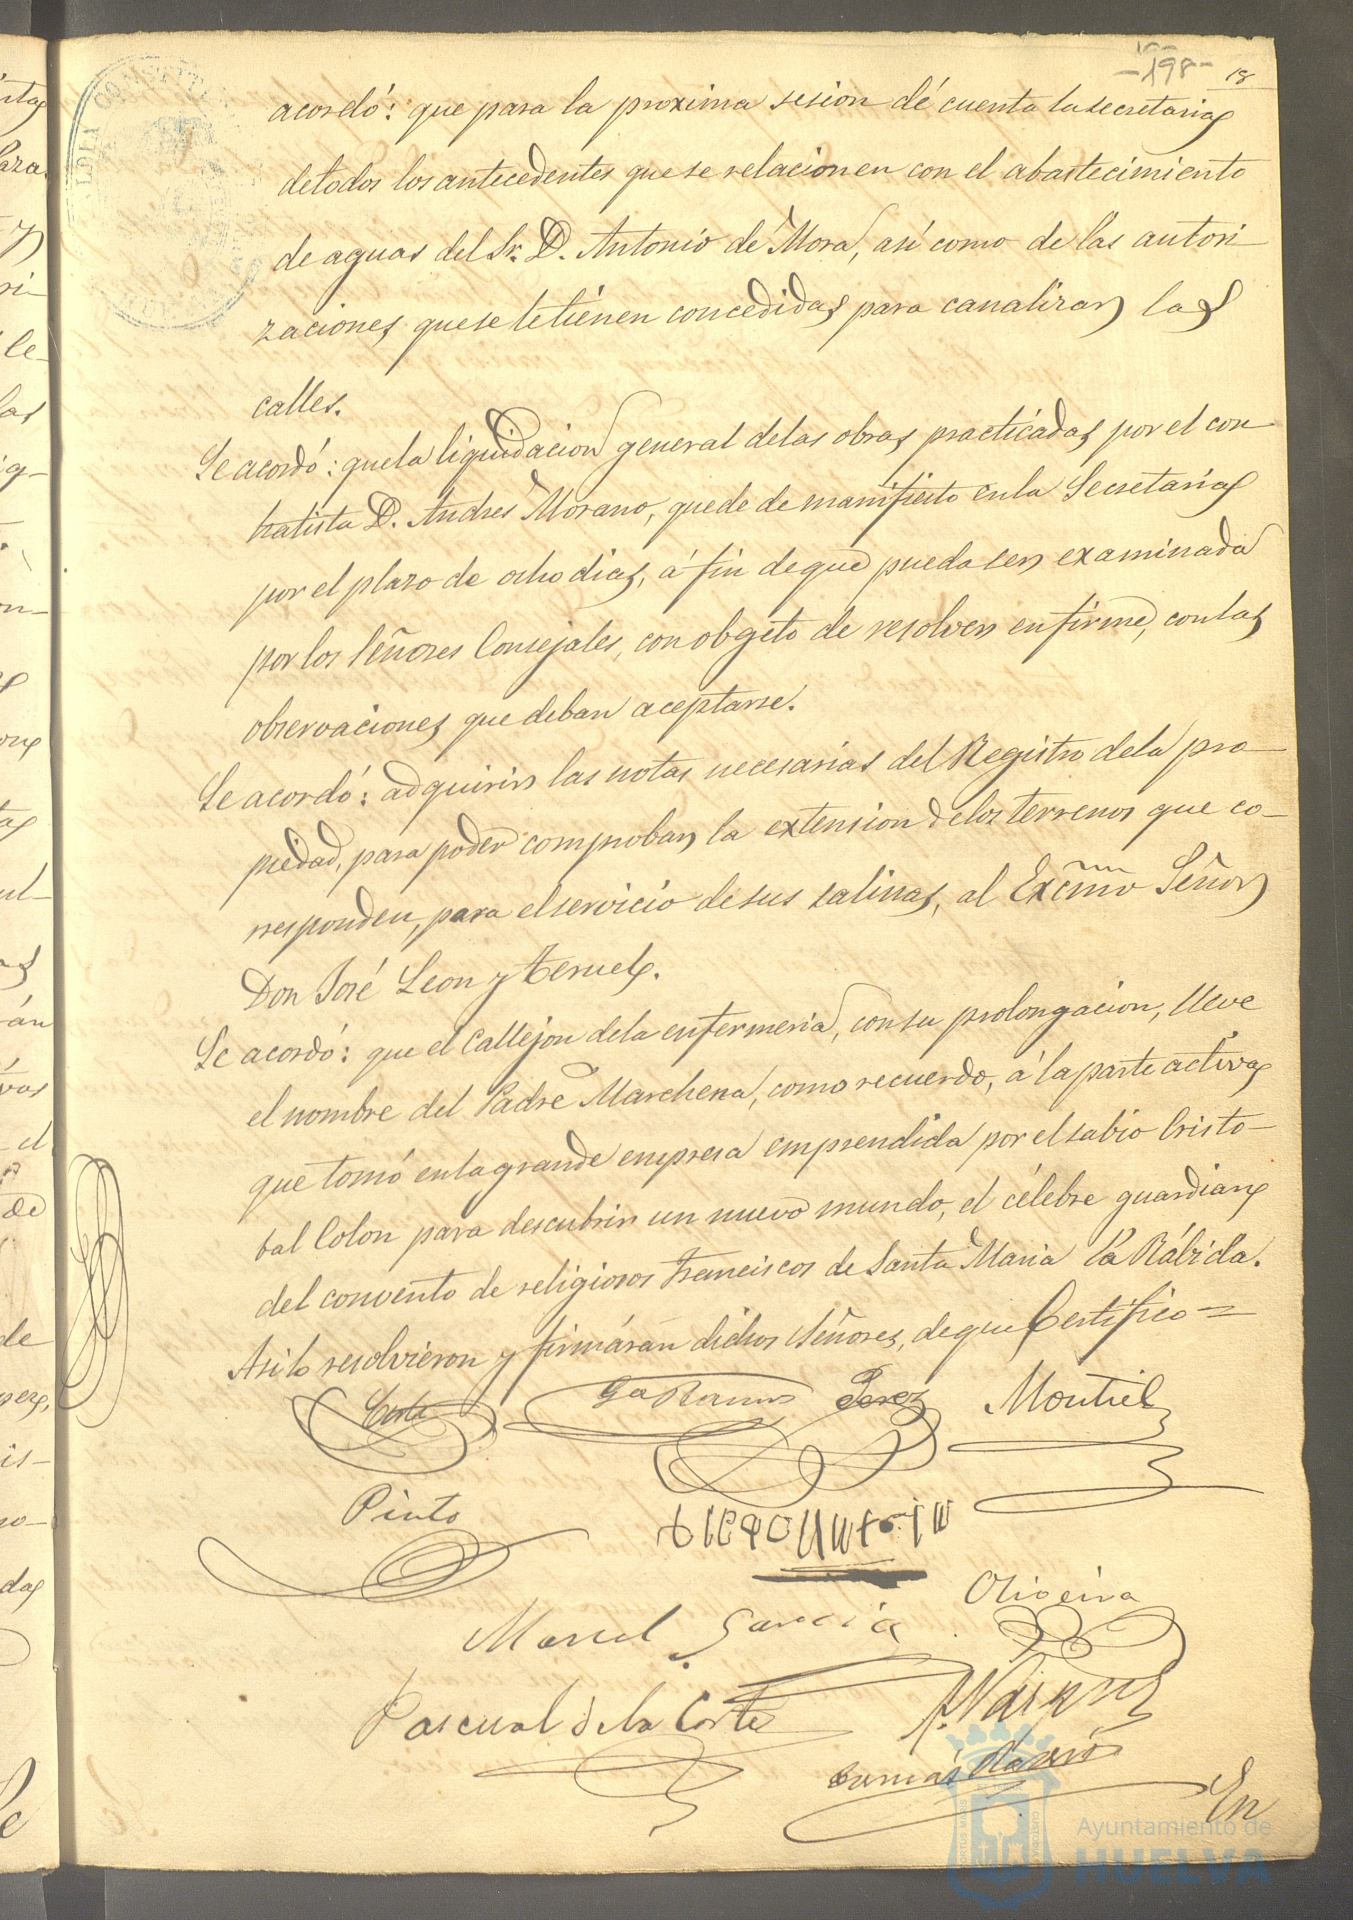 -198- 18
acordó: que para la proxima sesion dé cuenta la secretaria
de todos los antecedentes que se relacionen con el abastecimiento
de aguas del Sr. D. Antonio de Mora, asi como de las autori-
zaciones que se le tienen concedidas para canalizar las
calles.
Se acordó: que la liquidacion general de las obras practicadas por el con-
tratista D. Andres Morano, quede de manifiesto en la Secretaria
por el plazo de ocho dias, á fin de que pueda ser examinada
por los Señores Consejales, con obgeto de resolver en firme, con las
observaciones que deban aceptarse.
Se acordó: adquirir las notas necesarias del Registro de la pro-
piedad, para poder comprobar la extension de los terrenos que co-
rresponden, para el servicio de sus salinas, al Excmo Señor
Don José Leon y Teruel.
Se acordó: que el callejon de la enfermeria, con su prolongacion, lleve
el nombre del Padre Marchena, como recuerdo, á la parte activa
que tomó en la grande empresa emprendida por el sabio Cristo-
bal Colon para descubrir un nuevo mundo, el célebre guardian
del convento de religiosos Franciscos de Santa Maria la Rábida.
Asi lo resolvieron y firmáran dichos Señores, de que Certifico=
Corte Ga Ramos Perez Montiel
Pinto
Oliveira
Manuel Garcia
Pascual de la Corte A. Vazquez
Tomás
En
Ayuntamiento de
HUELVA